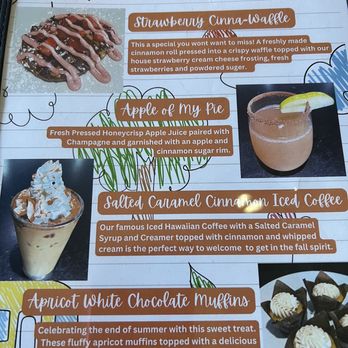 Strawberry Cinna-Waffle
This a special you wont want to miss! A freshly made
cinnamon roll pressed into a crispy waffle topped with our
house strawberry cream cheese frosting, fresh
strawberries and powdered sugar.
Apple of My Pie
Fresh Pressed Honeycrisp Apple Juice paired with
Champagne and garnished with an apple and
cinnamon sugar rim.
Salted Caramel Cinnamon Iced Coffee
Our famous Iced Hawaiian Coffee with a Salted Caramel
Syrup and Creamer topped with cinnamon and whipped
cream is the perfect way to welcome to get in the fall spirit.
Apricot White Chocolate Muffins
Celebrating the end of summer with this sweet treat.
These fluffy apricot muffins topped with a delicious